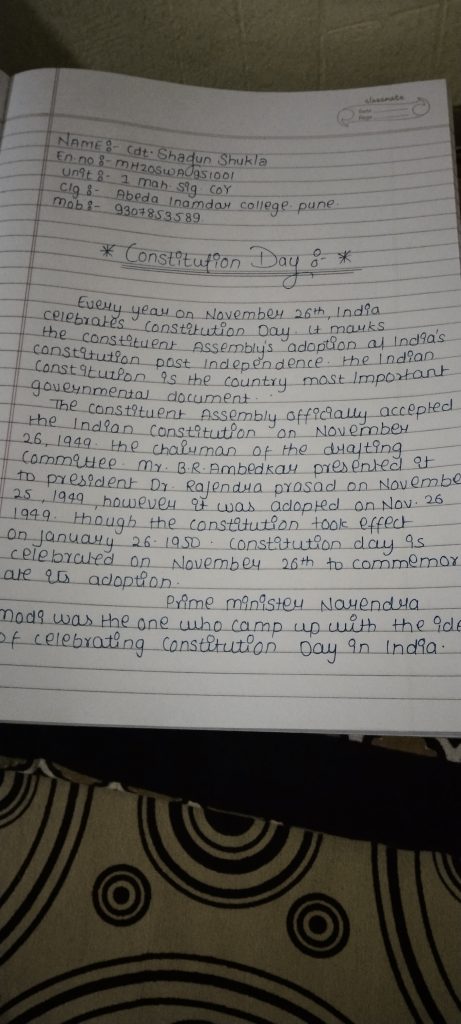 classmate
Date
Page
NAME :- Cdt. Shadun Shukla
En no :- MH20SWA0951001
Unit :- 1 mah. Sig COY
Clg :- Abeda Inamdar college. pune.
mob :- 9307853589.
* Constitution Day :- *
Every year on November 26th, India
celebrates Constitution Day. it marks
the constituent Assembly's adoption of India's
constitution post independence. the Indian
constitution is the country most important
governmental document.
The constituent Assembly officially accepted
the Indian constitution on November
26, 1949. the chairman of the drafting
committee. Mr. B.R. Ambedkar presented it
to president Dr. Rajendra prasad on Novembe
25, 1949, however it was adopted on Nov. 26
1949. though the constitution took effect
on january 26. 1950. constitution day is
celebrated on November 26th to commemor
ate its adoption.
Prime minister Narendra
modi was the one who camp up with the ide
of celebrating constitution Day in India.